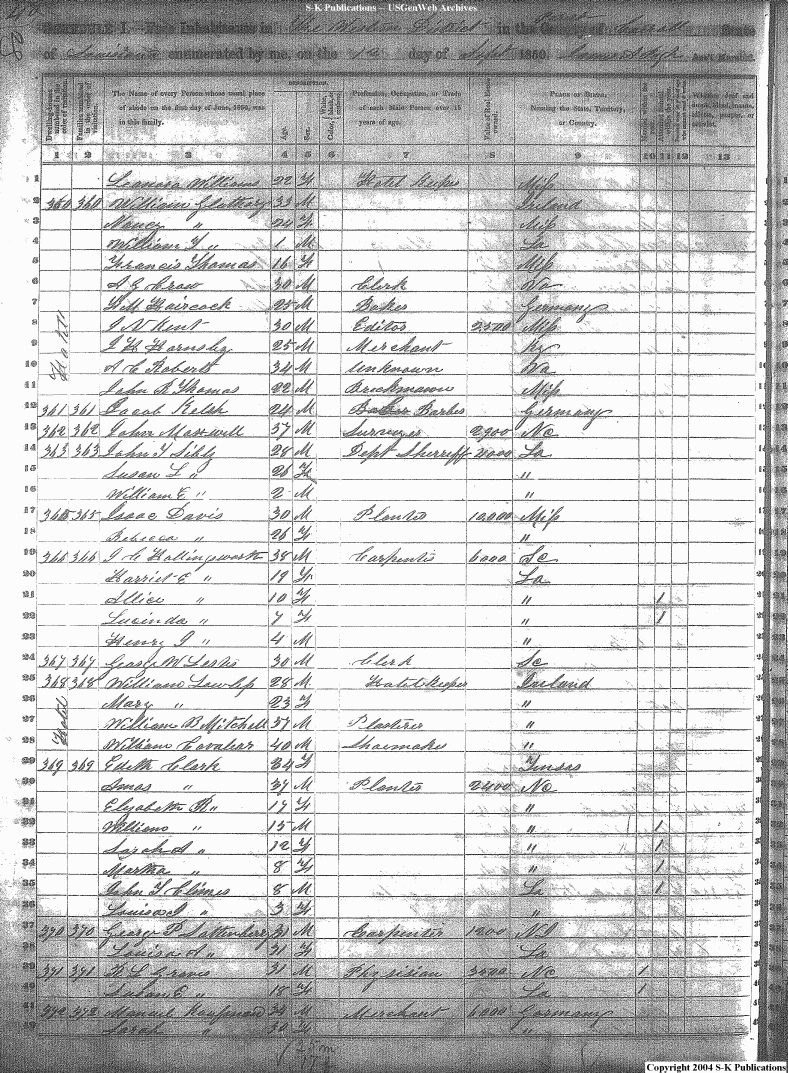 S-K Publications – USGenWeb Archives
SCHEDULE I.—Free Inhabitants in The Western District in the County of Carroll State
of Louisiana enumerated by me, on the 1st day of Sept 1850. Ass't Marshal.
Dwelling-houses numbered in the order of visitation. Families numbered in the order of visitation. The Name of every Person whose usual place of abode on the first day of June, 1850, was in this family. DESCRIPTION. Age. Sex. Color, Profession, Occupation, or Trade of each Male Person over 15 years of age. Value of Real Estate owned. PLACE OF BIRTH. Naming the State, Territory, or Country. Married within the year. Whether deaf and dumb, blind, insane, idiotic, pauper, or convict.
1 2 3 4 5 6 7 8 9 10 11 12 13
1 Leonora Williams 22 F Hotel Keeper Miss
2 360 360 William Gluthery 33 M Ireland
3 Nancy " 24 F Miss
4 William Y " 1 M La
5 Francis Thomas 16 F Miss
6 A G Crow 30 M Clerk Va
7 H M Haircock 25 M Baker Germany
8 J N Kent 30 M Editor 2500 Miss
9 J H Hornsby 25 M Merchant Ky
10 A C Roberts 34 M Unknown Va
11 John R Thomas 22 M Brickmason Miss
12 361 361 Jacob Kelsh 24 M Barber Germany
13 362 362 John Maxwell 37 M Surveyor 2900 NC
14 363 363 John Y Sibly 28 M Dept Sherriff 2000 La
15 Susan L " 26 F "
16 William E " 2 M "
17 365 365 Isaac Davis 30 M Planter 10,000 Miss
18 Rebecca " 26 F "
19 366 366 J C Hollingsworth 38 M Carpenter 6000 SC
20 Harriet E " 19 F La
21 Allice " 10 F " 1
22 Lucinda " 7 F " 1
23 Henry J " 4 M "
24 367 367 George W Lester 30 M Clerk SC
25 368 368 William Lawless 28 M Hotel Keeper Ireland
26 Hotel Mary " 23 F "
27 William B Mitchell 37 M Plasterer "
28 William Cavalear 40 M Shoemaker "
29 369 369 Edith Clark 34 F Tenn
30 Amas " 37 M Planter 2400 NC
31 Elizabeth R " 17 F "
32 William " 15 M " 1
33 Sarah A " 12 F " 1
34 Martha " 8 F " 1
35 John T Climes 8 M La 1
36 Louisa J " 3 F "
37 370 370 George P Sattenberg 31 M Carpenter 1200
38 Louisa A " 31 F La
39 371 371 R L Graves 31 M Physician 3500 NC 1
40 Susan E " 18 F La 1
41 372 372 Manuel Kaufman 34 M Merchant 6000 Germany
42 Sarah " 30 F "
25 m
17 f
Copyright 2004 S-K Publications